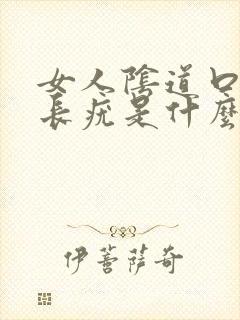 女人陰道口
長疣是什麼
伊菩薩奇